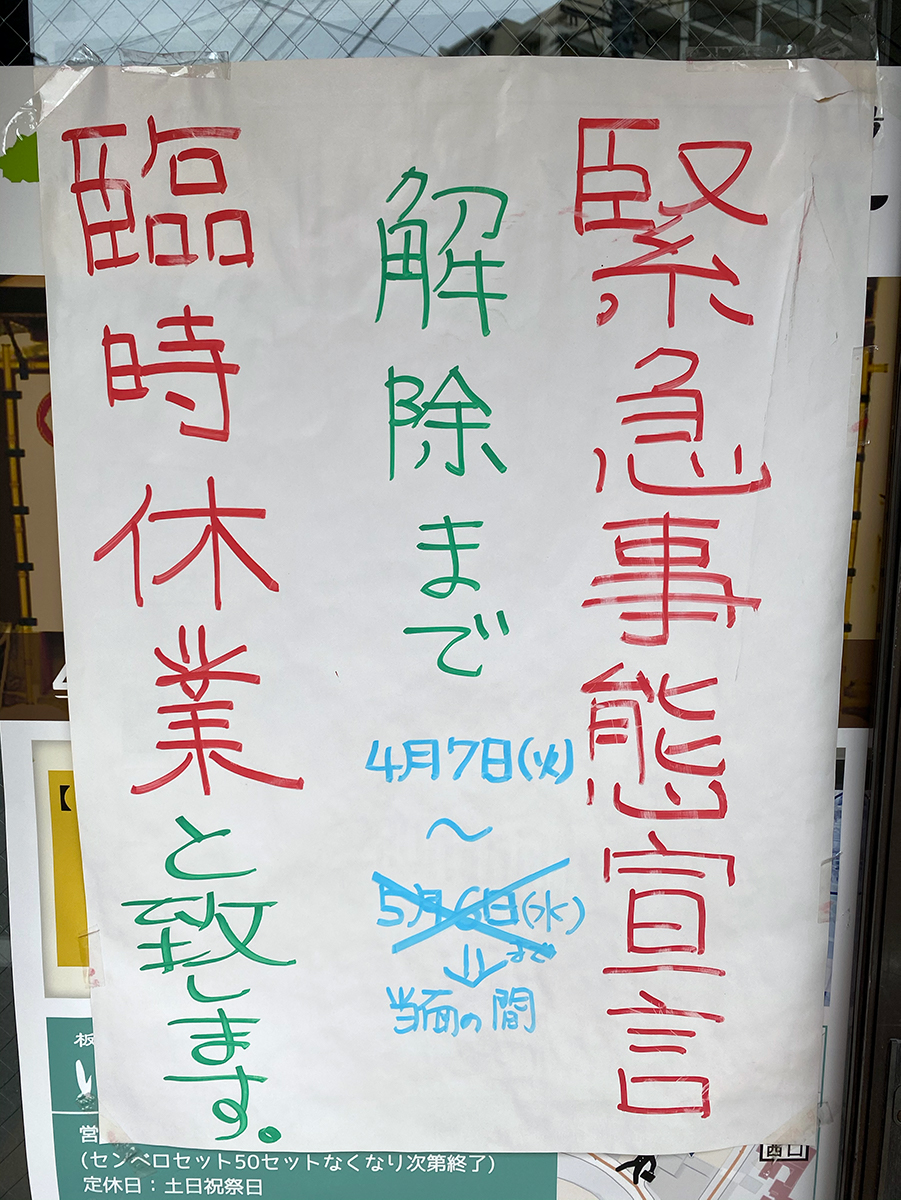 緊急事態宣言
解除まで
4月7日(火)
〜
5月6日(水)
まで
⇓
当面の間
臨時休業と致します。
【
板
営
(センベロセット50セットなくなり次第終了)
定休日：土日祝祭日
西口